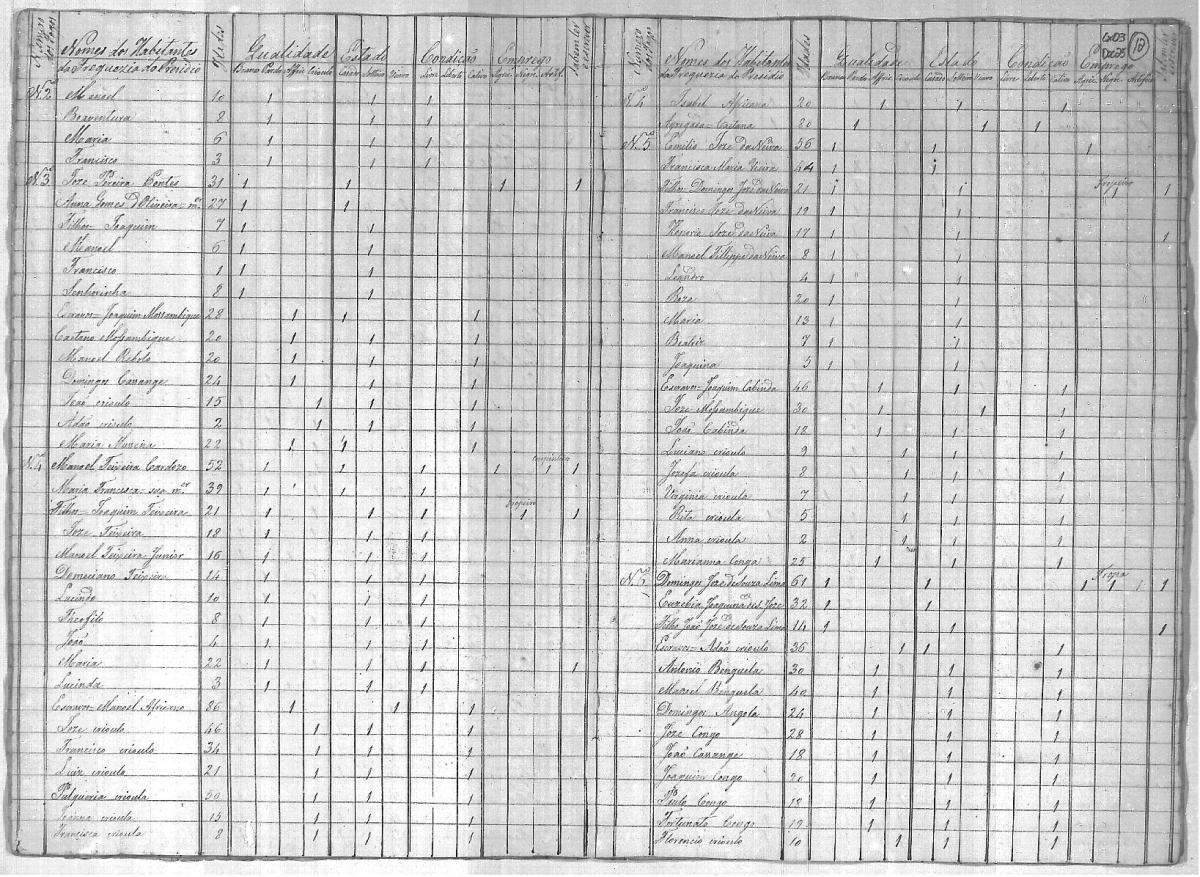 Nomes dos Habitantes
da Freguezia do Presidio
Idades
Qualidade Estado Condição Emprego
Branco Pardo Affric Crioulo Cazado Solteiro Viuvo Livre Liberto Cativo Agric. Negoc. Artif.
N.2 Manoel 10 1 1 1
Boaventura 8 1 1 1
Maria 6 1 1 1
Francisco 3 1 1 1
N.3 Joze Pereira Pontes 31 1 1 1 1
Anna Gomes d'Oliveira = m.er 27 1 1
Filhos = Joaquim 7 1 1
Manoel 6 1 1
Francisco 1 1 1
Senhorinha 8 1 1
Escravos = Joaquim Mossambique 28 1 1 1
Caetano Mossambique 20 1 1 1
Manoel Rebolo 20 1 1 1
Domingos Canange 24 1 1 1
João crioulo 15 1 1 1
Adão crioulo 2 1 1 1
Maria 22 1 1 1
N.4 Manoel Teixeira Cardozo 52 1 1 1 1 carpinteiro 1 1
Maria Francisca = sua m.er 39 1 1 1
Filhos = Joaquim Teixeira 21 1 1 1 1 1
Joze Teixeira 18 1 1 1
Manoel Teixeira Junior 16 1 1 1
Domiciano Teixeira 14 1 1 1
Lucindo 10 1 1 1
Theofilo 8 1 1 1
João 4 1 1 1
Maria 22 1 1 1 1
Lucinda 3 1 1 1
Escravos = Manoel Africano 86 1 1 1
Joze crioulo 46 1 1 1
Francisco crioulo 34 1 1 1
Luiz crioulo 21 1 1 1
Pulqueria crioula 50 1 1 1
Joanna crioula 15 1 1 1
Francisca crioula 8 1 1 1
Cx03
D026
12
Numero dos Fogos
Nomes dos Habitantes
da Freguezia do Presidio
Idades
Qualidade Estado Condição Emprego
Branco Pardo Affric Crioulo Cazado Solteiro Viuvo Livre Liberto Cativo Agric. Negoc. Artifice
N.4 Isabel Africana 20 1 1 1
Agregada = Caetana 80 1 1 1
N.5 Emilio Joze da Neiva 56 1 1 1
Francisca Maria Vieira 44 1 1
Filhos = Domingos Joze da Neiva 21 1 1 Tropeiro 1 1
Francisco Joze da Neiva 19 1 1
Honorio Joze da Neiva 17 1 1 1
Manoel Fillippe da Neiva 8 1 1
Leandro 4 1 1
Roza 20 1 1
Maria 13 1 1
Beatriz 7 1 1
Joaquina 5 1 1
Escravos = Joaquim Cabinda 46 1 1 1
Joze Mossambique 30 1 1 1
João Cabinda 18 1 1 1
Luciano crioulo 9 1 1 1
Jozefa crioula 8 1 1 1
Virginia crioula 7 1 1 1
Rita crioula 5 1 1 1
Anna crioula 2 1 1 1
Marianna Congo 25 1 1 1
N.6 Domingos Joze de Souza Lima 61 1 1 1 Tropa 1 1 1
Euzebia Joaquina de S. Joze 32 1 1
Filho João Joze de Souza Lima 14 1 1 1
Escravos = Adão crioulo 36 1 1 1
Antonio Benguela 30 1 1 1
Manoel Benguela 40 1 1 1
Domingos Angola 24 1 1 1
Joze Congo 28 1 1 1
João Canange 18 1 1 1
Joaquim Congo 20 1 1 1
Paulo Congo 18 1 1 1
Fortunato Congo 19 1 1 1
Florencio crioulo 10 1 1 1